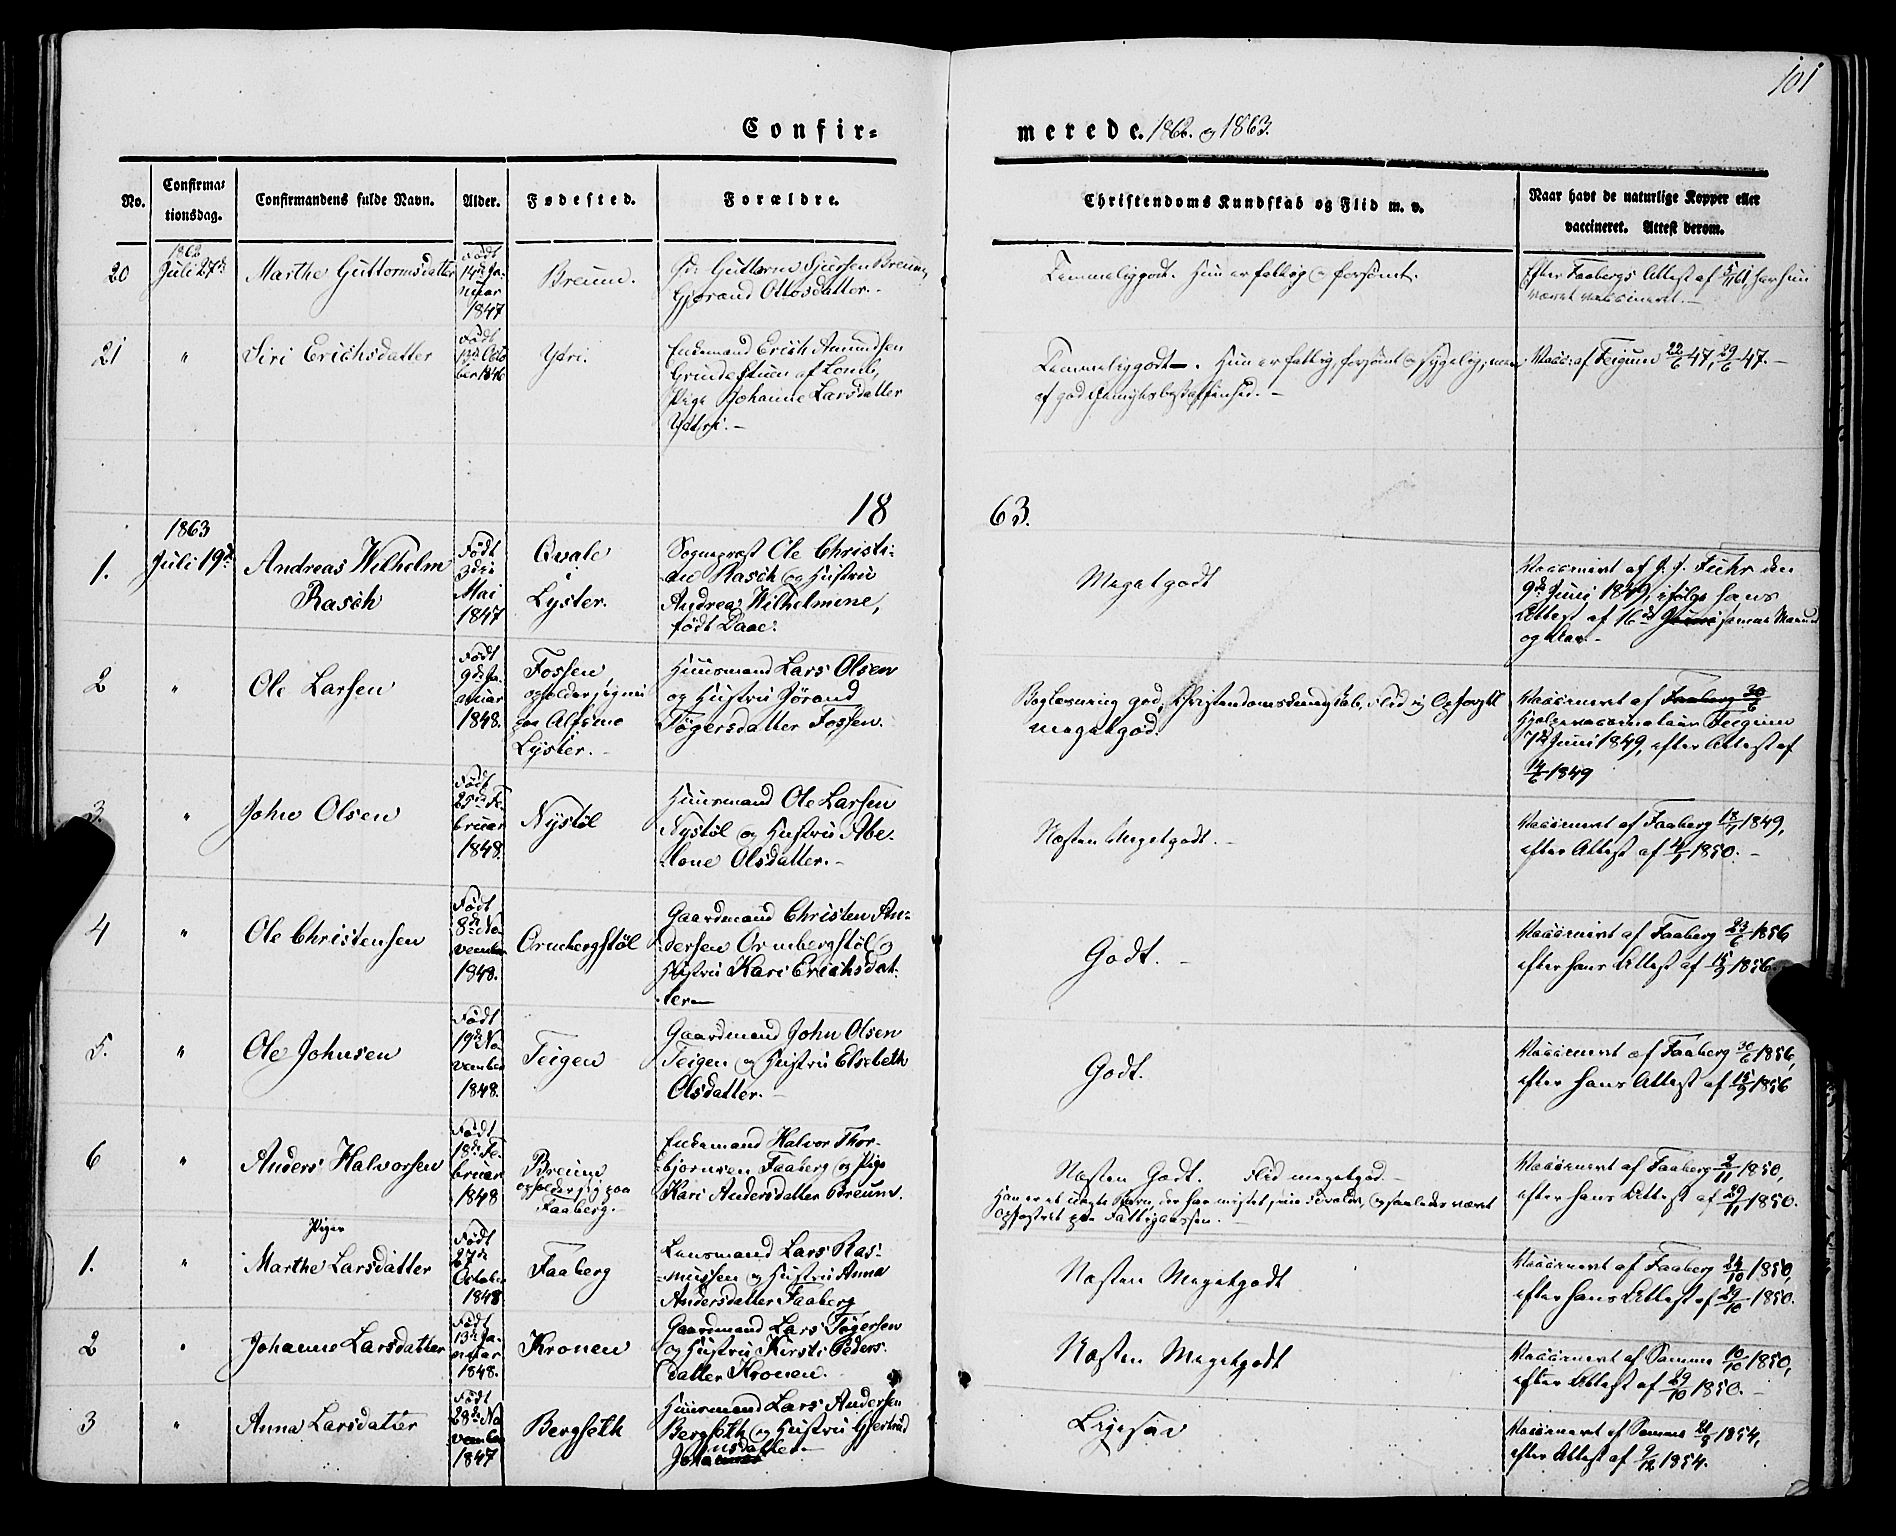 101
Confir=
merede. 1862. og 1863.
No.
Confirma=
tionsdag.
Confirmandens fulde Navn.
Alder.
Fødested.
Forældre.
Christendoms Kundskab og Flid m. v.
Naar havt de naturlige Kopper eller
vaccineret. Attest derom.
20
1862
Juli 27de
Marthe Guttormsdatter
Født
14de Ja-
nuar
1847
Breum.
Guttorm Sjursen Breum,
Gjørand Ottosdatter.
Temmeliggodt. Hun er fattig og forsømt.
Efter Faabergs Attest af 5/11 61, har hun
været vaccineret.
21
"
Siri Erichsdatter
Født
13de Octo
ber 1846
Ytri.
Enkemand Erich Amundsen
Grindestuen af Lom,
Pige Johanne Larsdatter
Ytri.
Temmeliggodt. Hun er fattig, forsømt og sygelig, men
af god Gemytsbeskaffenhed.
Vacc: af Teigum 22/6 47, 29/6 47.
18
63.
1863
1.
Juli 19de
Andreas Wilhelm
Rasch
Født
3die
Mai
1847
Qvale
i
Lyster.
Sognepræst Ole Christi-
an Rasch og Hustru
Andrea Wilhelmine,
født Daae.
Megetgodt
Vaccineret af J. J. Fuhr den
9de Juni 1849, ifølge hans
Attest af 16de Juni samme Maaned
og Aar.
2
"
Ole Larsen
Født
9de Ja-
nuar
1848.
Fossen
opholder sig nu
paa Alsmo
Lyster.
Huusmand Lars Olsen
og Hustru Jørand
Tøgersdatter Fossen.
Boglæsning god, Christendomskundskab, Flid og Opførsel
megetgod.
Vaccineret af Faaberg 30/6
Hjelpevaccinateur Teigum
7de Juni 1849, efter Attest af
14/6 1849
3.
"
John Olsen
Født
25de Fe
bruar
1848.
Nystöl
Huusmand Ole Larsen
Nystöl og Hustru Abe-
lone Olsdatter.
Næsten Megetgodt.
Vaccineret af Faaberg 18/7 1849,
efter Attest af 4/7 1850.
4
"
Ole Christensen
Født
8de No
vember
1848.
Ormbergstöl
Gaardmand Christen An-
dersen Ormbergstöl og
Hustru Kari Erichsdat-
ter
Godt.
Vaccineret af Faaberg 23/6 1856
efter hans Attest af 15/9 1856.
5.
"
Ole Johnsen
Født
19de No
vember
1848.
Teigen
Gaardmand John Olsen
Teigen og Hustru Elsebeth
Olsdatter.
Godt.
Vaccineret af Faaberg 30/6 1856,
efter hans Attest af 15/9 1856
6
"
Anders Halvorsen
Født
18de Fe
bruar
1848
Breum
opholder sig paa
Faaberg.
Enkemand Halvor Thor-
bjørnsen Faaberg og Pige
Kari Andersdatter Breum.
Næsten Godt. Flid megetgod.
Han er et uægte Barn, der har mistet sine Forældre, og saaledes været
opfostret paa Fattigcassen.
Vaccineret af Faaberg 2/11 1850,
efter hans Attest af 29/11 1850.
Piger
1.
"
Marthe Larsdatter
Født
27de
October
1848
Faaberg
Lensmand Lars Ras-
mussen og Hustru Anna
Andersdatter Faaberg
Næsten Megetgodt
Vaccineret af Faaberg 24/10 1850,
efter hans Attest af 29/10 1850.
2
"
Johanne Larsdatter
Født
13de Ja-
nuar
1848.
Kronen
Gaardmand Lars Tøgersen
og Hustru Kirsti Peders-
datter Kronen.
Næsten Megetgodt
Vaccineret af Samme 10/10 1850,
efter Attest af 29/10 1850.
3
"
Anna Larsdatter
Født
28de No
vember
1847
Bergseth
Huusmand Lars Andersen
Bergseth og Hustru Gjertrud
Johannesdatter.
Ligesaa
Vaccineret af Samme 21/8 1854,
efter Attest af 9/12 1854.